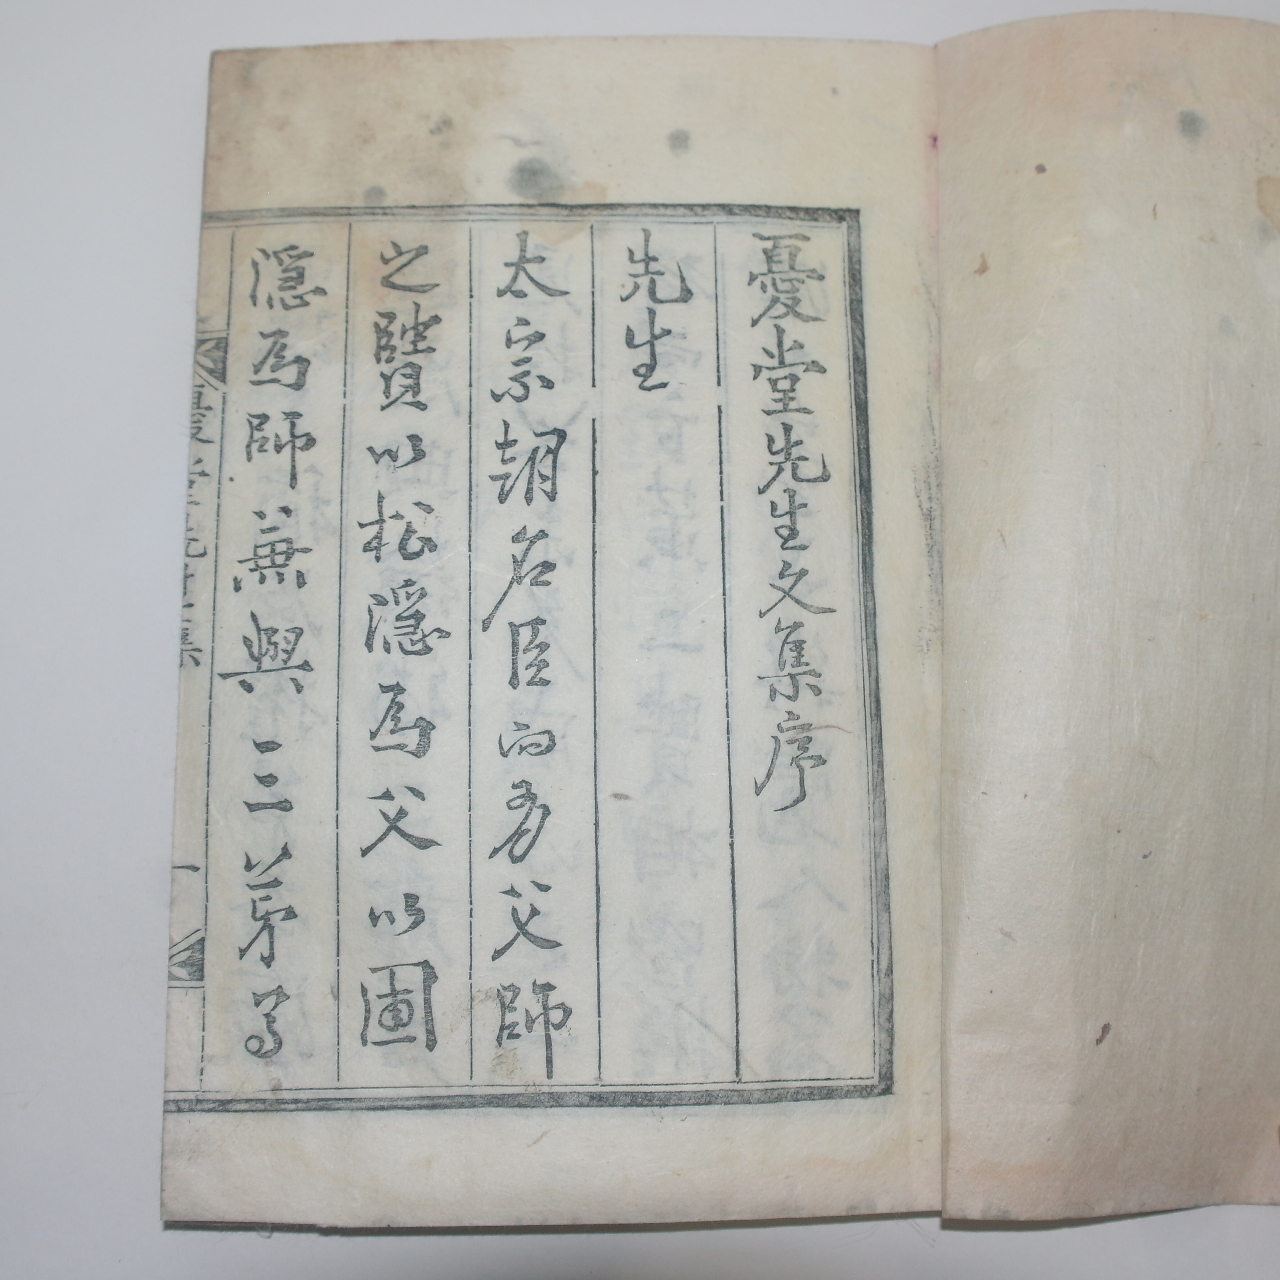 憂堂先生文集序
先生
太宗朝名臣而有父師
之賢以松隱爲父以圃
隱爲師兼與三弟爲
憂堂先生文集
一